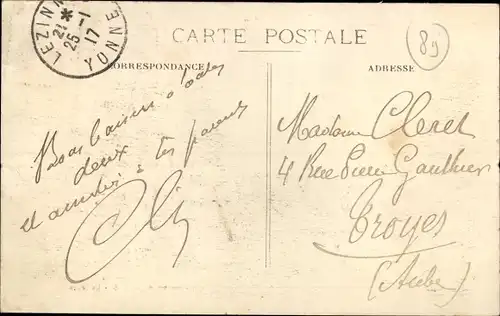 LEZINN
21 * -1
25 17
YONNE
CARTE POSTALE
89
CORRESPONDANCE
ADRESSE
Bons baisers à toutes
deux
et amitiés à tes parents
Madame Cleret
4 Rue Pierre Gauthier
Troyes
(Aube)